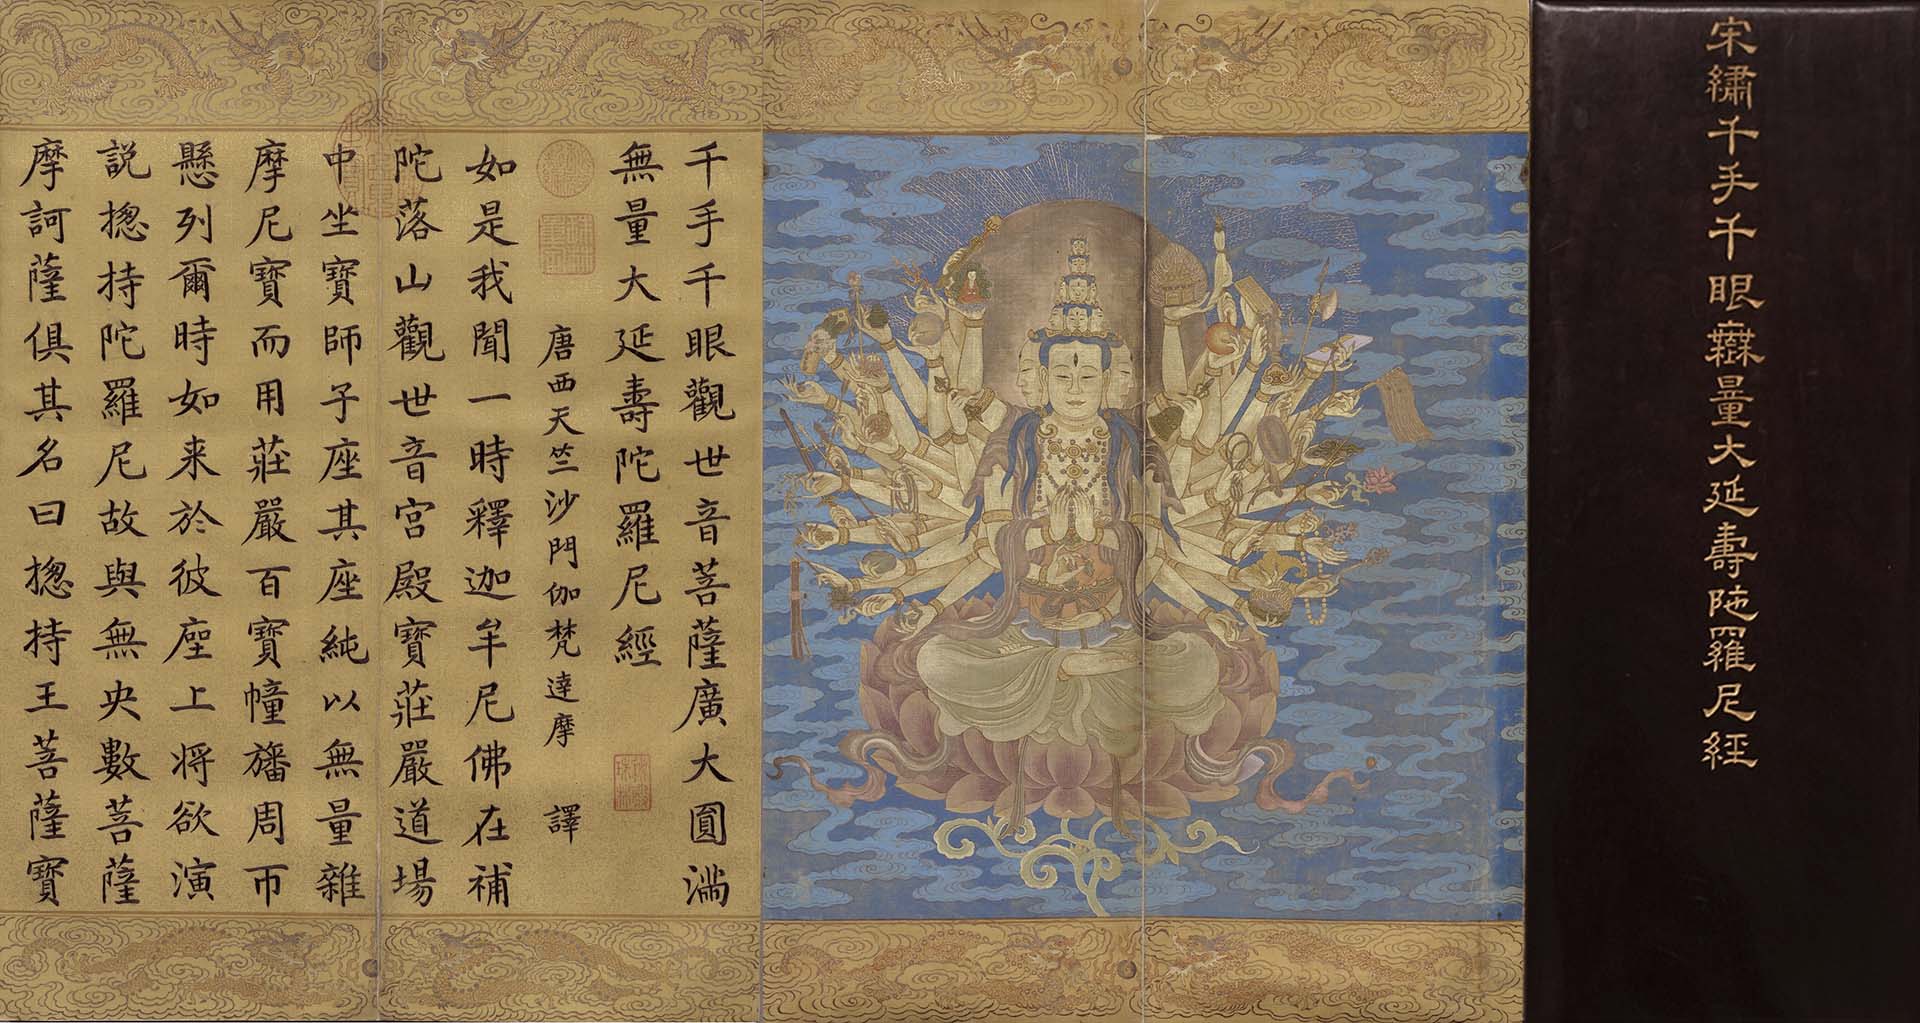 宋繡千手千眼無量大延壽陀羅尼經
千手千眼觀世音菩薩廣大圓滿
無量大延壽陀羅尼經
唐西天竺沙門伽梵達摩 譯
如是我聞一時釋迦牟尼佛在補
陀落山觀世音宮殿寶莊嚴道場
中坐寶師子座其座純以無量雜
摩尼寶而用莊嚴百寶幢旛周帀
懸列爾時如来於彼座上將欲演
説揔持陀羅尼故與無央數菩薩
摩訶薩俱其名曰揔持王菩薩寶